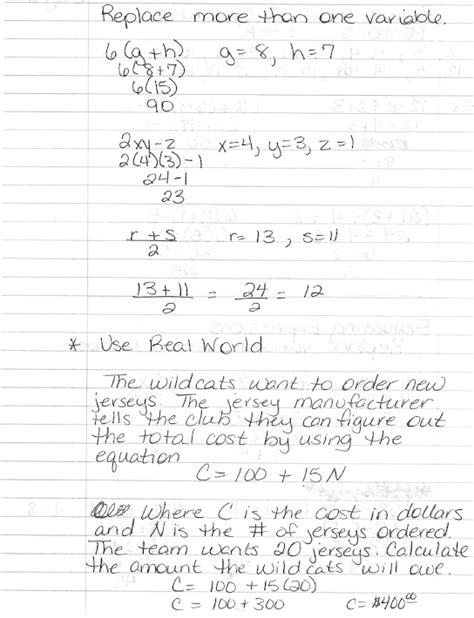 Replace more than one variable.
6(g+h) g=8, h=7
6(8+7)
6(15)
90
2xy-z x=4, y=3, z=1
2(4)(3)-1
24-1
23
r+s/2 r=13, s=11
13+11/2 = 24/2 = 12
* Use Real World
The wildcats want to order new
jerseys. The jersey manufacturer
tells the club they can figure out
the total cost by using the
equation
C=100 + 15N
Where C is the cost in dollars
and N is the # of jerseys ordered.
The team wants 20 jerseys. Calculate
the amount the wildcats will owe.
C= 100 + 15(20)
C = 100 + 300 C= $400⁰⁰